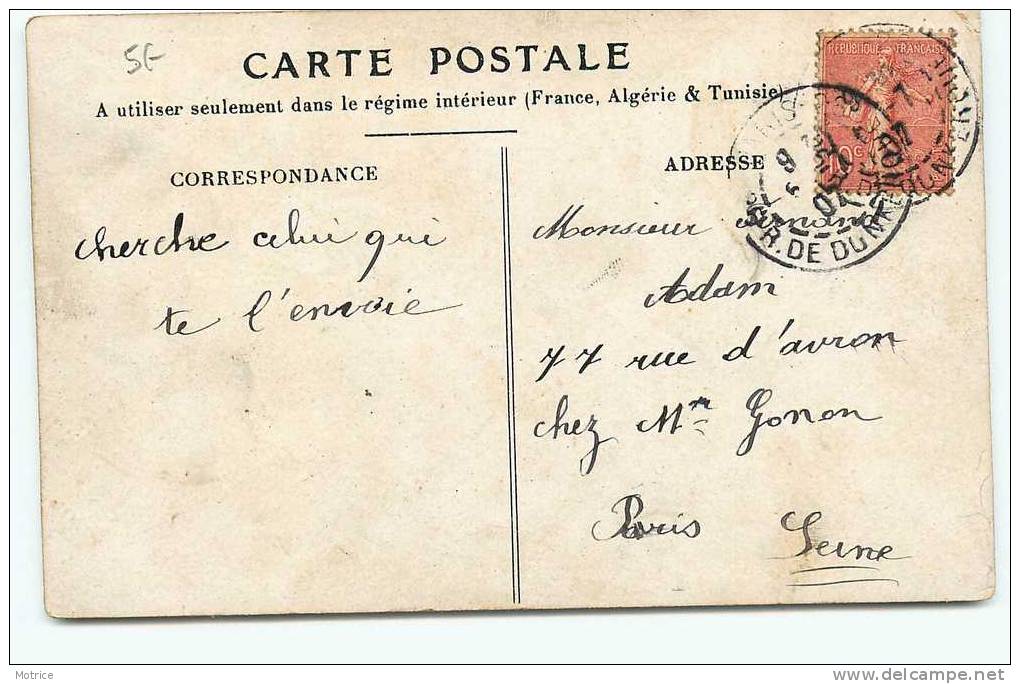 5f
CARTE POSTALE
A utiliser seulement dans le régime intérieur (France, Algérie & Tunisie)
CORRESPONDANCE
cherche celui qui
te l'envoie
ADRESSE
Monsieur
Adam
77 rue d'avron
chez Mr Gonon
Paris Seine
REPUBLIQUE FRANÇAISE
10c
R. DE DUNKERQUE
Motrice
delcampe.net